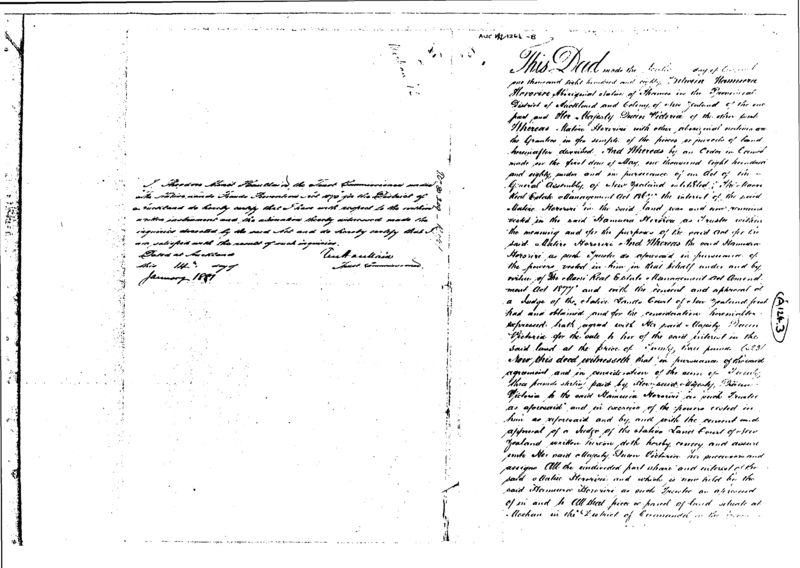 I, Theodore Minet Haultain, the Trust Commissioner under
the Native Lands Frauds Prevention Act for the District of
Auckland do hereby certify that I have with respect to the within
written instrument and the alienation thereby witnessed made the
inquiries directed by the said Act and do hereby certify that I
am satisfied with the result of such inquiries.
Dated at Auckland
this 14th day of
January 1881
Trust Commissioner
This Deed made the day of
one thousand eight hundred and eighty Between Hamuera
Hororiri Aboriginal Native of Thames in the Provincial
District of Auckland and Colony of New Zealand of the one
part and Her Majesty Queen Victoria of the other part
Whereas Matire Hororiri with other aboriginal natives are
the Grantees in fee simple of the pieces or parcels of land
hereinafter described And Whereas by an Order in Council
made on the first day of May, one thousand eight hundred
and eighty, under and in pursuance of an Act of the
General Assembly of New Zealand intituled "The Maori
Real Estate Management Act 1867" the interest of the said
Matire Hororiri in the said land was and now remains
vested in the said Hamuera Hororiri as Trustee within
the meaning and for the purposes of the said Act for the
said Matire Hororiri And Whereas the said Hamuera
Hororiri as such Trustee as aforesaid in pursuance of
the powers vested in him in that behalf under and by
virtue of The Maori Real Estate Management Act Amend
ment Act 1877 and with the consent and approval of
a Judge of the Native Lands Court of New Zealand first
had and obtained and for the consideration hereinafter
expressed hath agreed with Her said Majesty Queen
Victoria for the sale to her of the said interest in the
said land at the price of Twenty three pounds (£23)
Now this deed witnesseth that in pursuance of the said
agreement and in consideration of the sum of Twenty
three pounds sterling paid by Her said Majesty Queen
Victoria to the said Hamuera Hororiri as such Trustee
as aforesaid and in exercise of the powers vested in
him as aforesaid and by and with the consent and
approval of a Judge of the Native Land Court of New
Zealand written hereon doth hereby convey and assure
unto Her said Majesty Queen Victoria her successors and
assigns All the undivided part share and interest of the
said Matire Hororiri and which is now held by the
said Hamuera Hororiri as such Trustee as aforesaid
of in and to All that piece or parcel of land situate at
Moehau in the District of Coromandel in the
AUC
A124.3